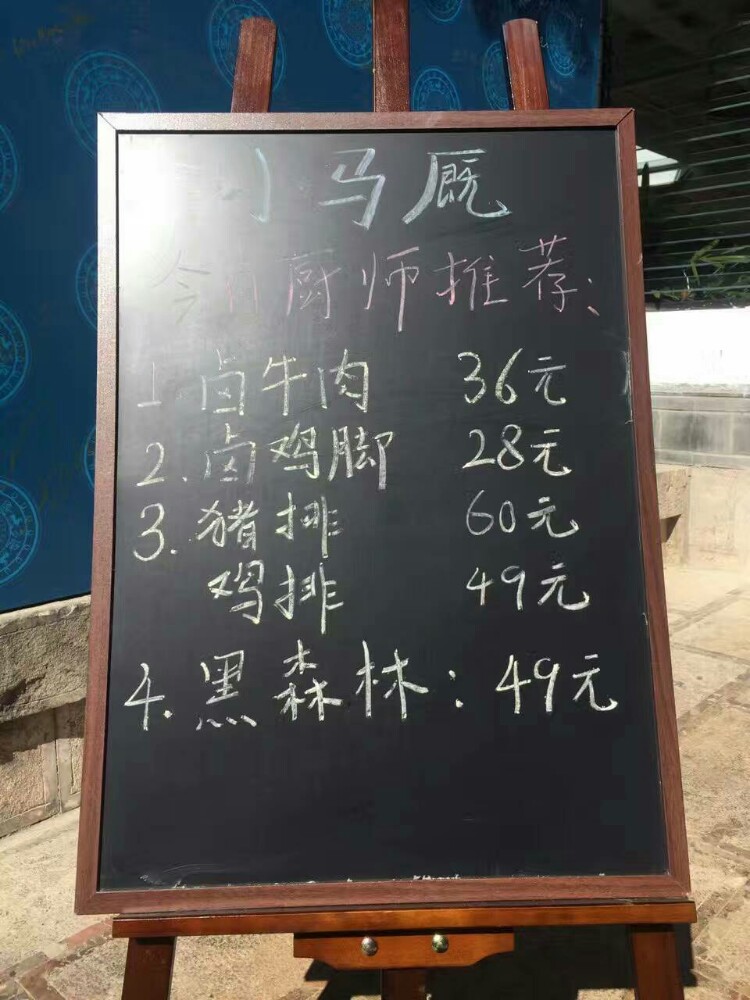 小马厩
今日厨师推荐:
1.卤牛肉 36元
2.卤鸡脚 28元
3.猪排 60元
鸡排 49元
4.黑森林:49元